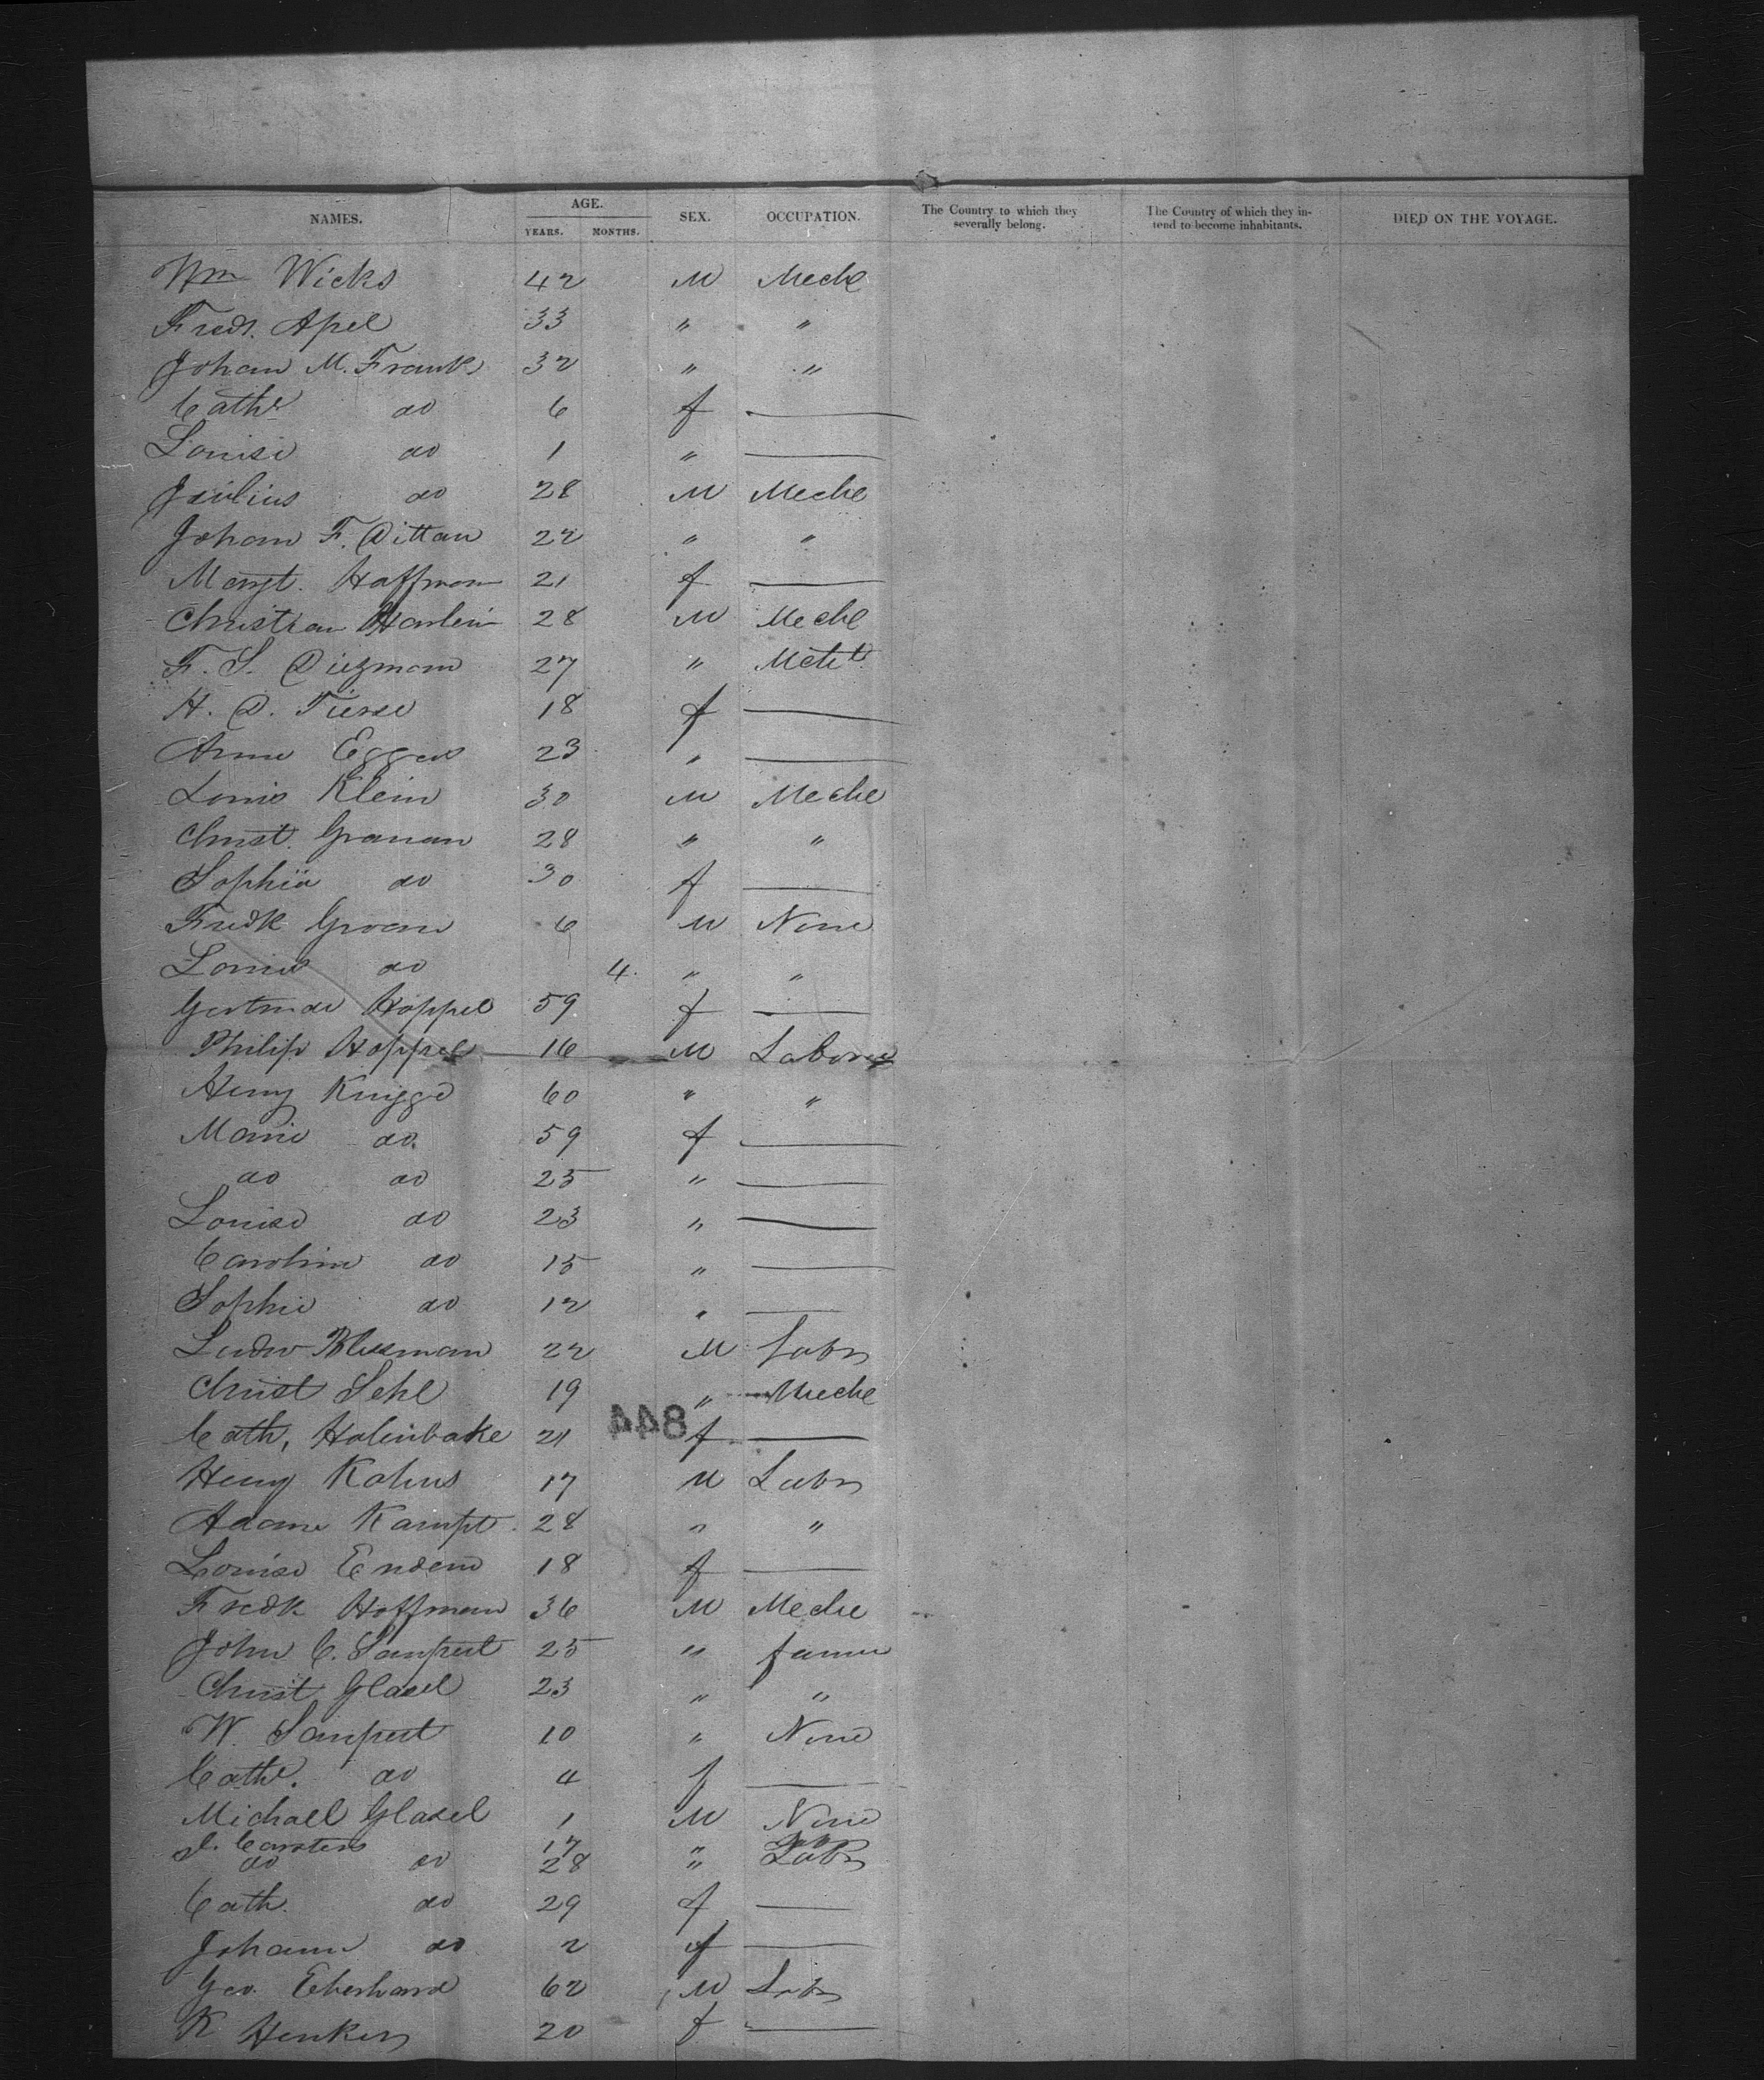 NAMES. AGE. SEX. OCCUPATION. The Country to which they severally belong. The Country of which they intend to become inhabitants. DIED ON THE VOYAGE.
YEARS. MONTHS.
Wm Wicks 42 M Mechc
Fredr. Apel 33 " "
Johan M. Frank 32 " "
Cathe do 6 f —
Louise do 1 " —
Julius do 28 M Mechc
Johann F. Dittan 22 " "
Margt. Hoffman 21 f —
Christian Harlein 28 M Mechc
F. S. Diezmann 27 " Mcht
H. D. Tierse 18 f —
Anna Eggers 23 " —
Louis Klein 30 M Mechc
Christ. Granan 28 " "
Sophia do 30 f —
Fredk Groan 6 M None
Louis do 4 " "
Gertrude Hoppel 59 f —
Philip Hoppel 16 M Laborer
Henry Knigge 60 " "
Marie do. 59 f —
do do 25 " —
Louise do 23 " —
Caroline do 15 " —
Sophie do 12 " —
Ludw Blessman 22 M Labr
Christ Sehl 19 " Mechc
844
Cath, Holinbake 21 f —
Henry Kohns 17 M Labr
Adam Kampt. 28 " "
Louise Endem 18 f —
Fredk Hoffman 36 M Mechc
John C. Sampert 25 " farmer
Christ Glasel 23 " "
W. Sampert 10 " None
Cathe. do 4 f —
Michael Glasel 1 M None
Carstens 17 " Labr
do do 28 " Labr
Cath. do 29 f —
Johanne do 2 f —
Geo. Eberhard 62 M Labr
K Henken 20 f —